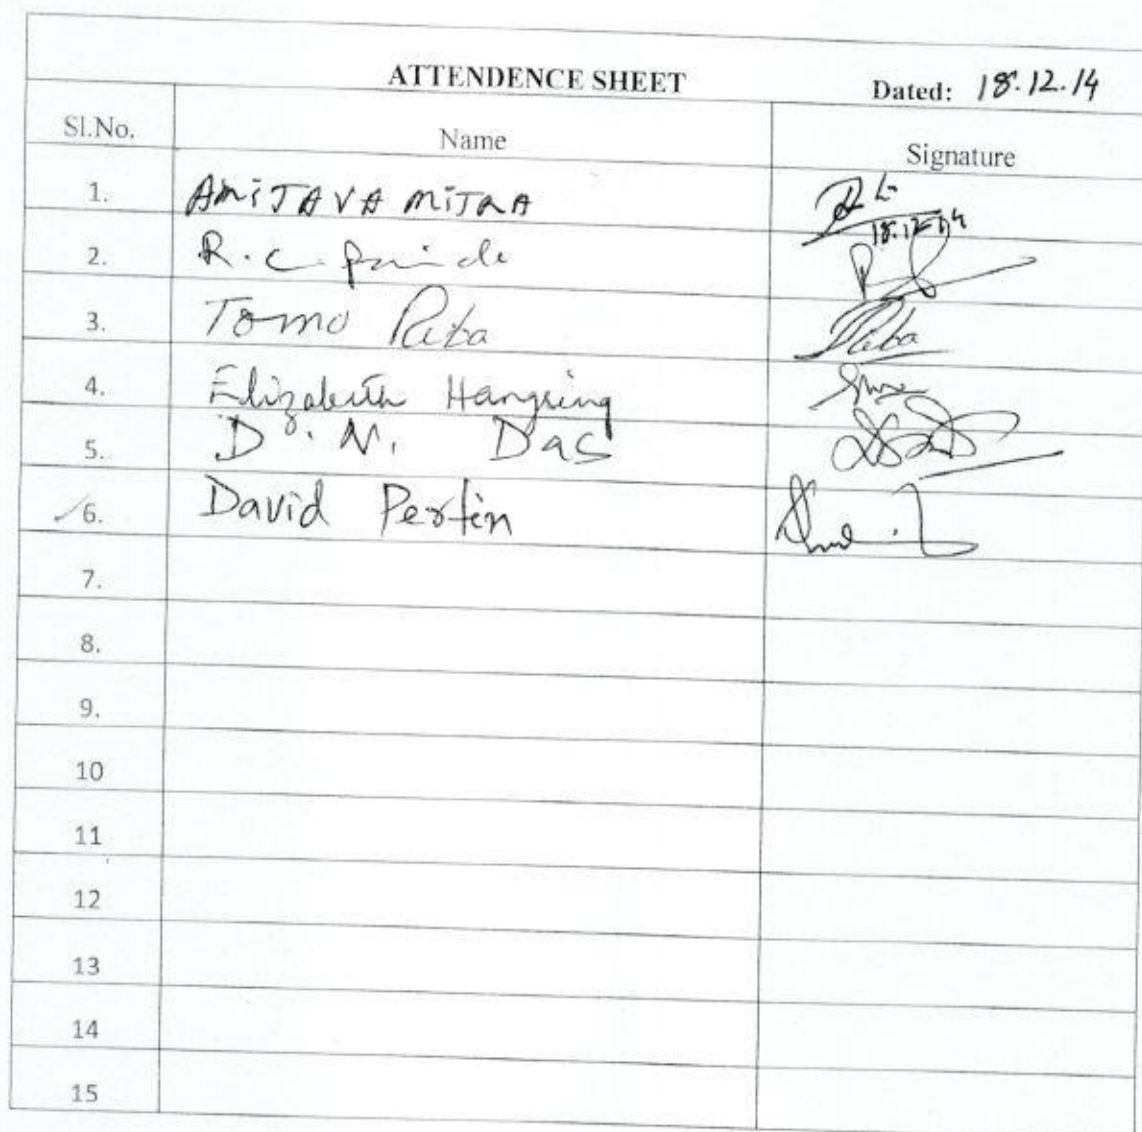 ATTENDENCE SHEET Dated: 18.12.14
Sl.No. Name Signature
1. AMITAVA MITRA
18.12.14
2. R. C.
3. Tomo Riba Riba
4. Elizabeth Hangsing
5. D. N. Das
6. David Pertin
7.
8.
9.
10
11
12
13
14
15